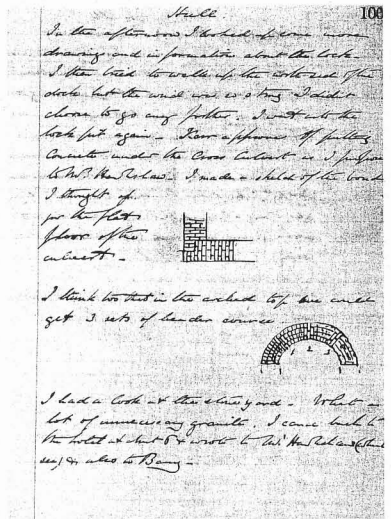 Hull. 100
In the afternoon I looked up some more
drawings and information about the lock.
I then tried to walk up the side of the
dock but the wind was so strong I didn't
choose to go any further. I went into the
lock pit again. approves of putting
Concrete under the Cross Culvert as I propose
to Mr. Hawkshaw. I made a sketch of the bond
I thought of
for the flat
floor of the
culvert.
I think too that in the arched top one could
get 3 sets of header course
1 2 3
I had a look at the stone yard. What a
lot of unnecessary granite. I came back to
the hotel at about 6 & wrote to Mr. Hawkshaw
& also to